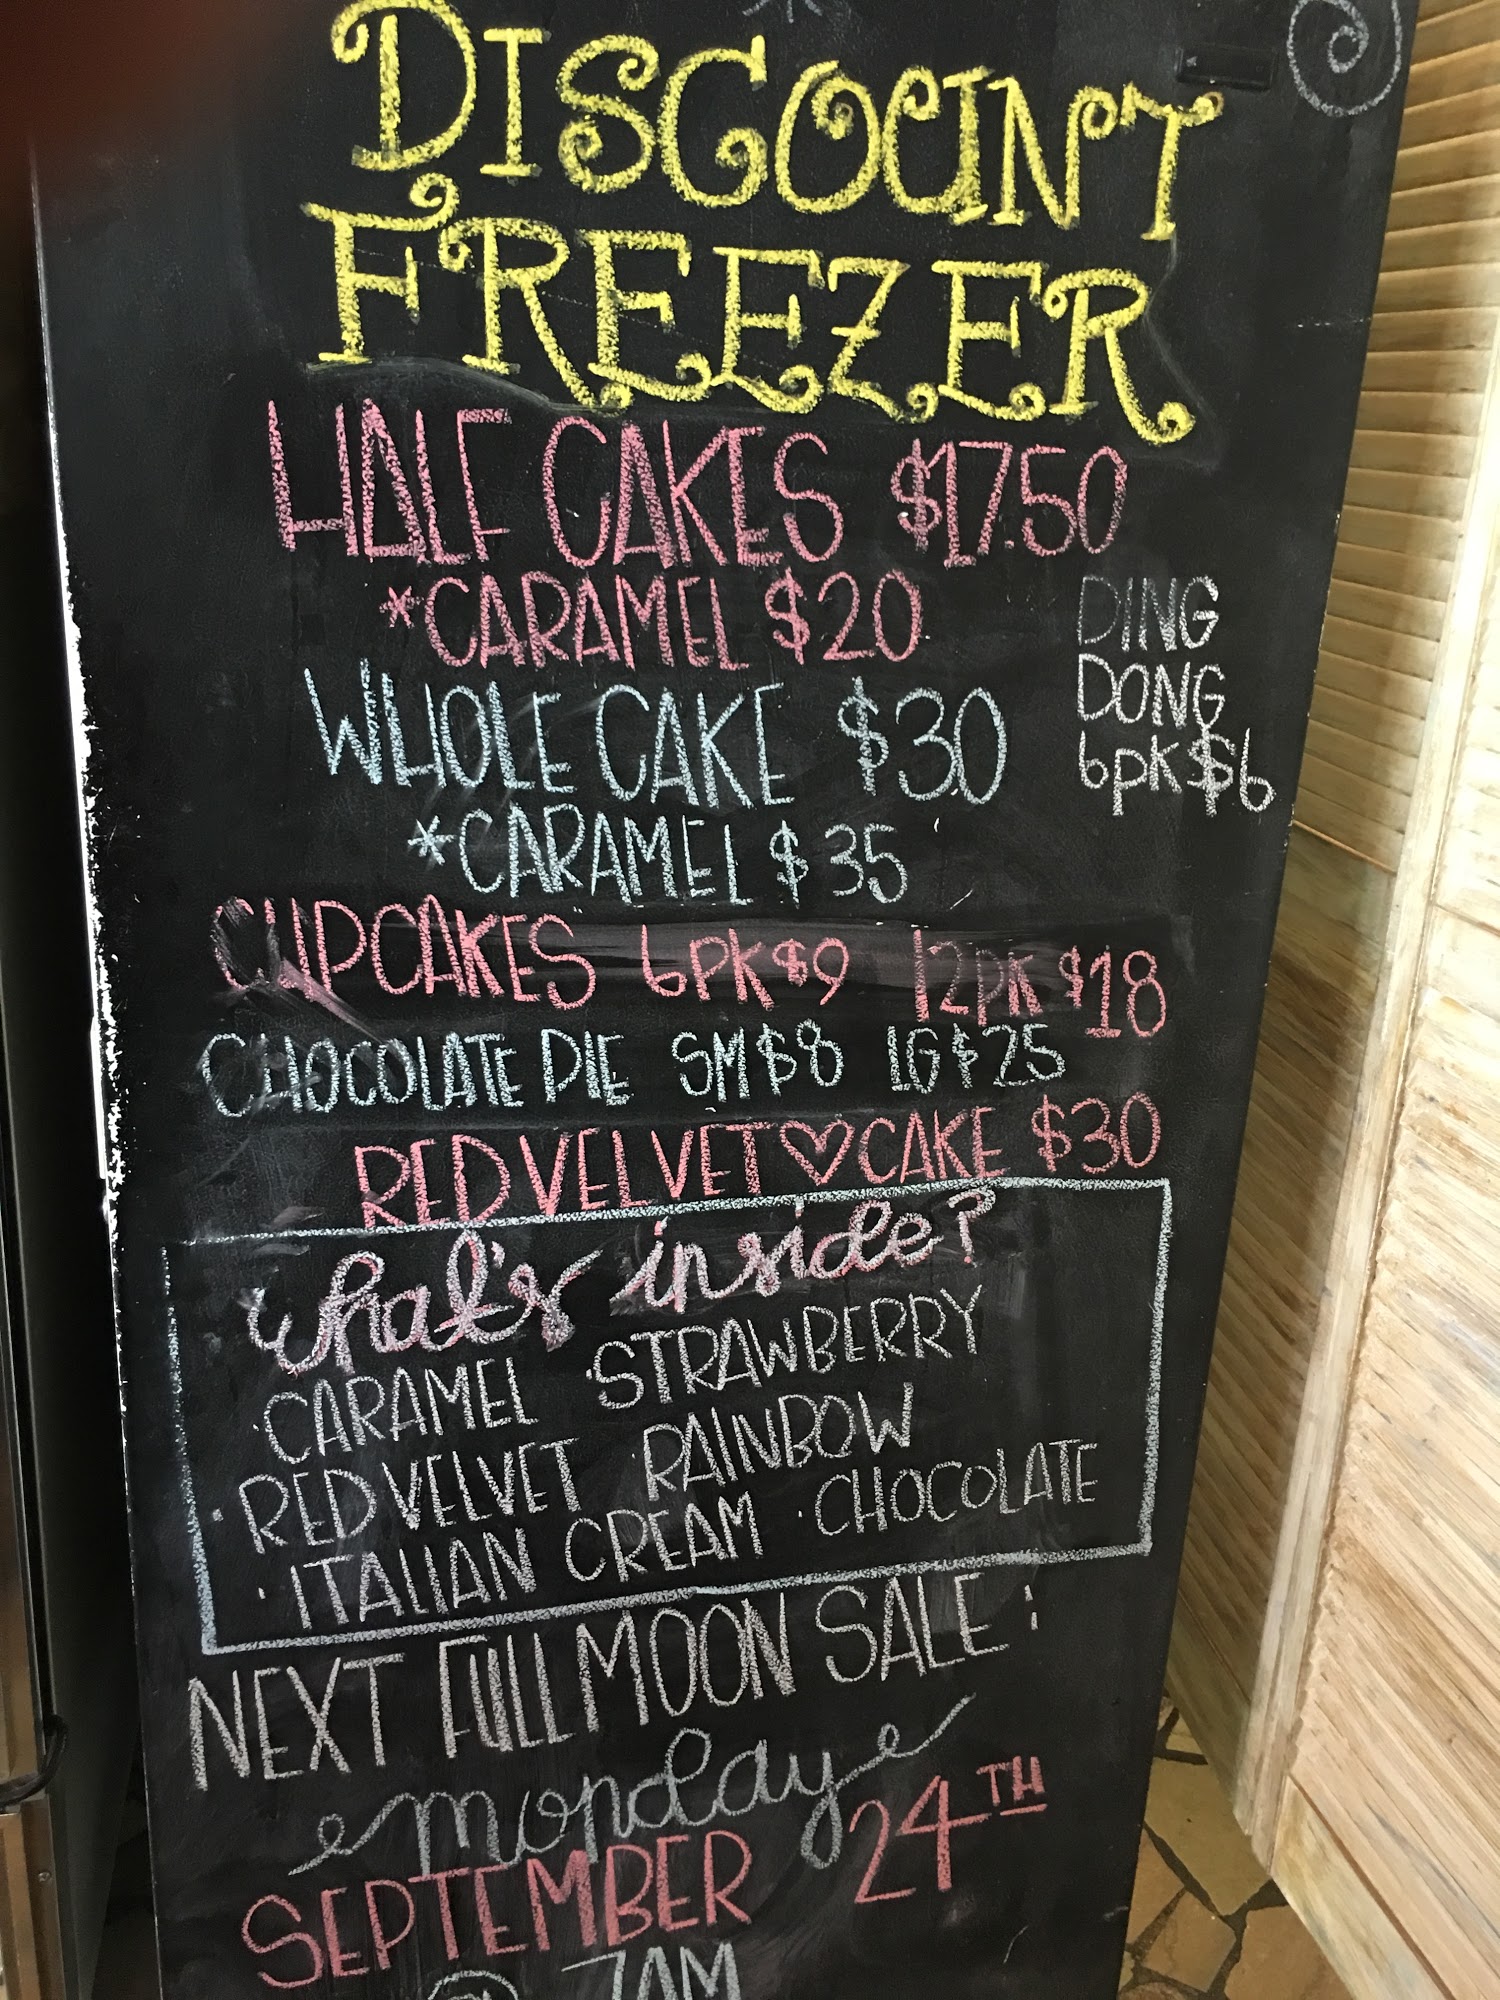 DISCOUNT
FREEZER
HALF CAKES $17.50
*CARAMEL $20
WHOLE CAKE $30
*CARAMEL $35
DING
DONG
6PK $6
CUPCAKES 6PK $9 12PK $18
CHOCOLATE PIE SM $8 LG $25
RED VELVET ♡ CAKE $30
What's inside?
· CARAMEL · STRAWBERRY
· RED VELVET · RAINBOW
· ITALIAN CREAM · CHOCOLATE
NEXT FULL MOON SALE:
monday
SEPTEMBER 24TH
@ 7AM